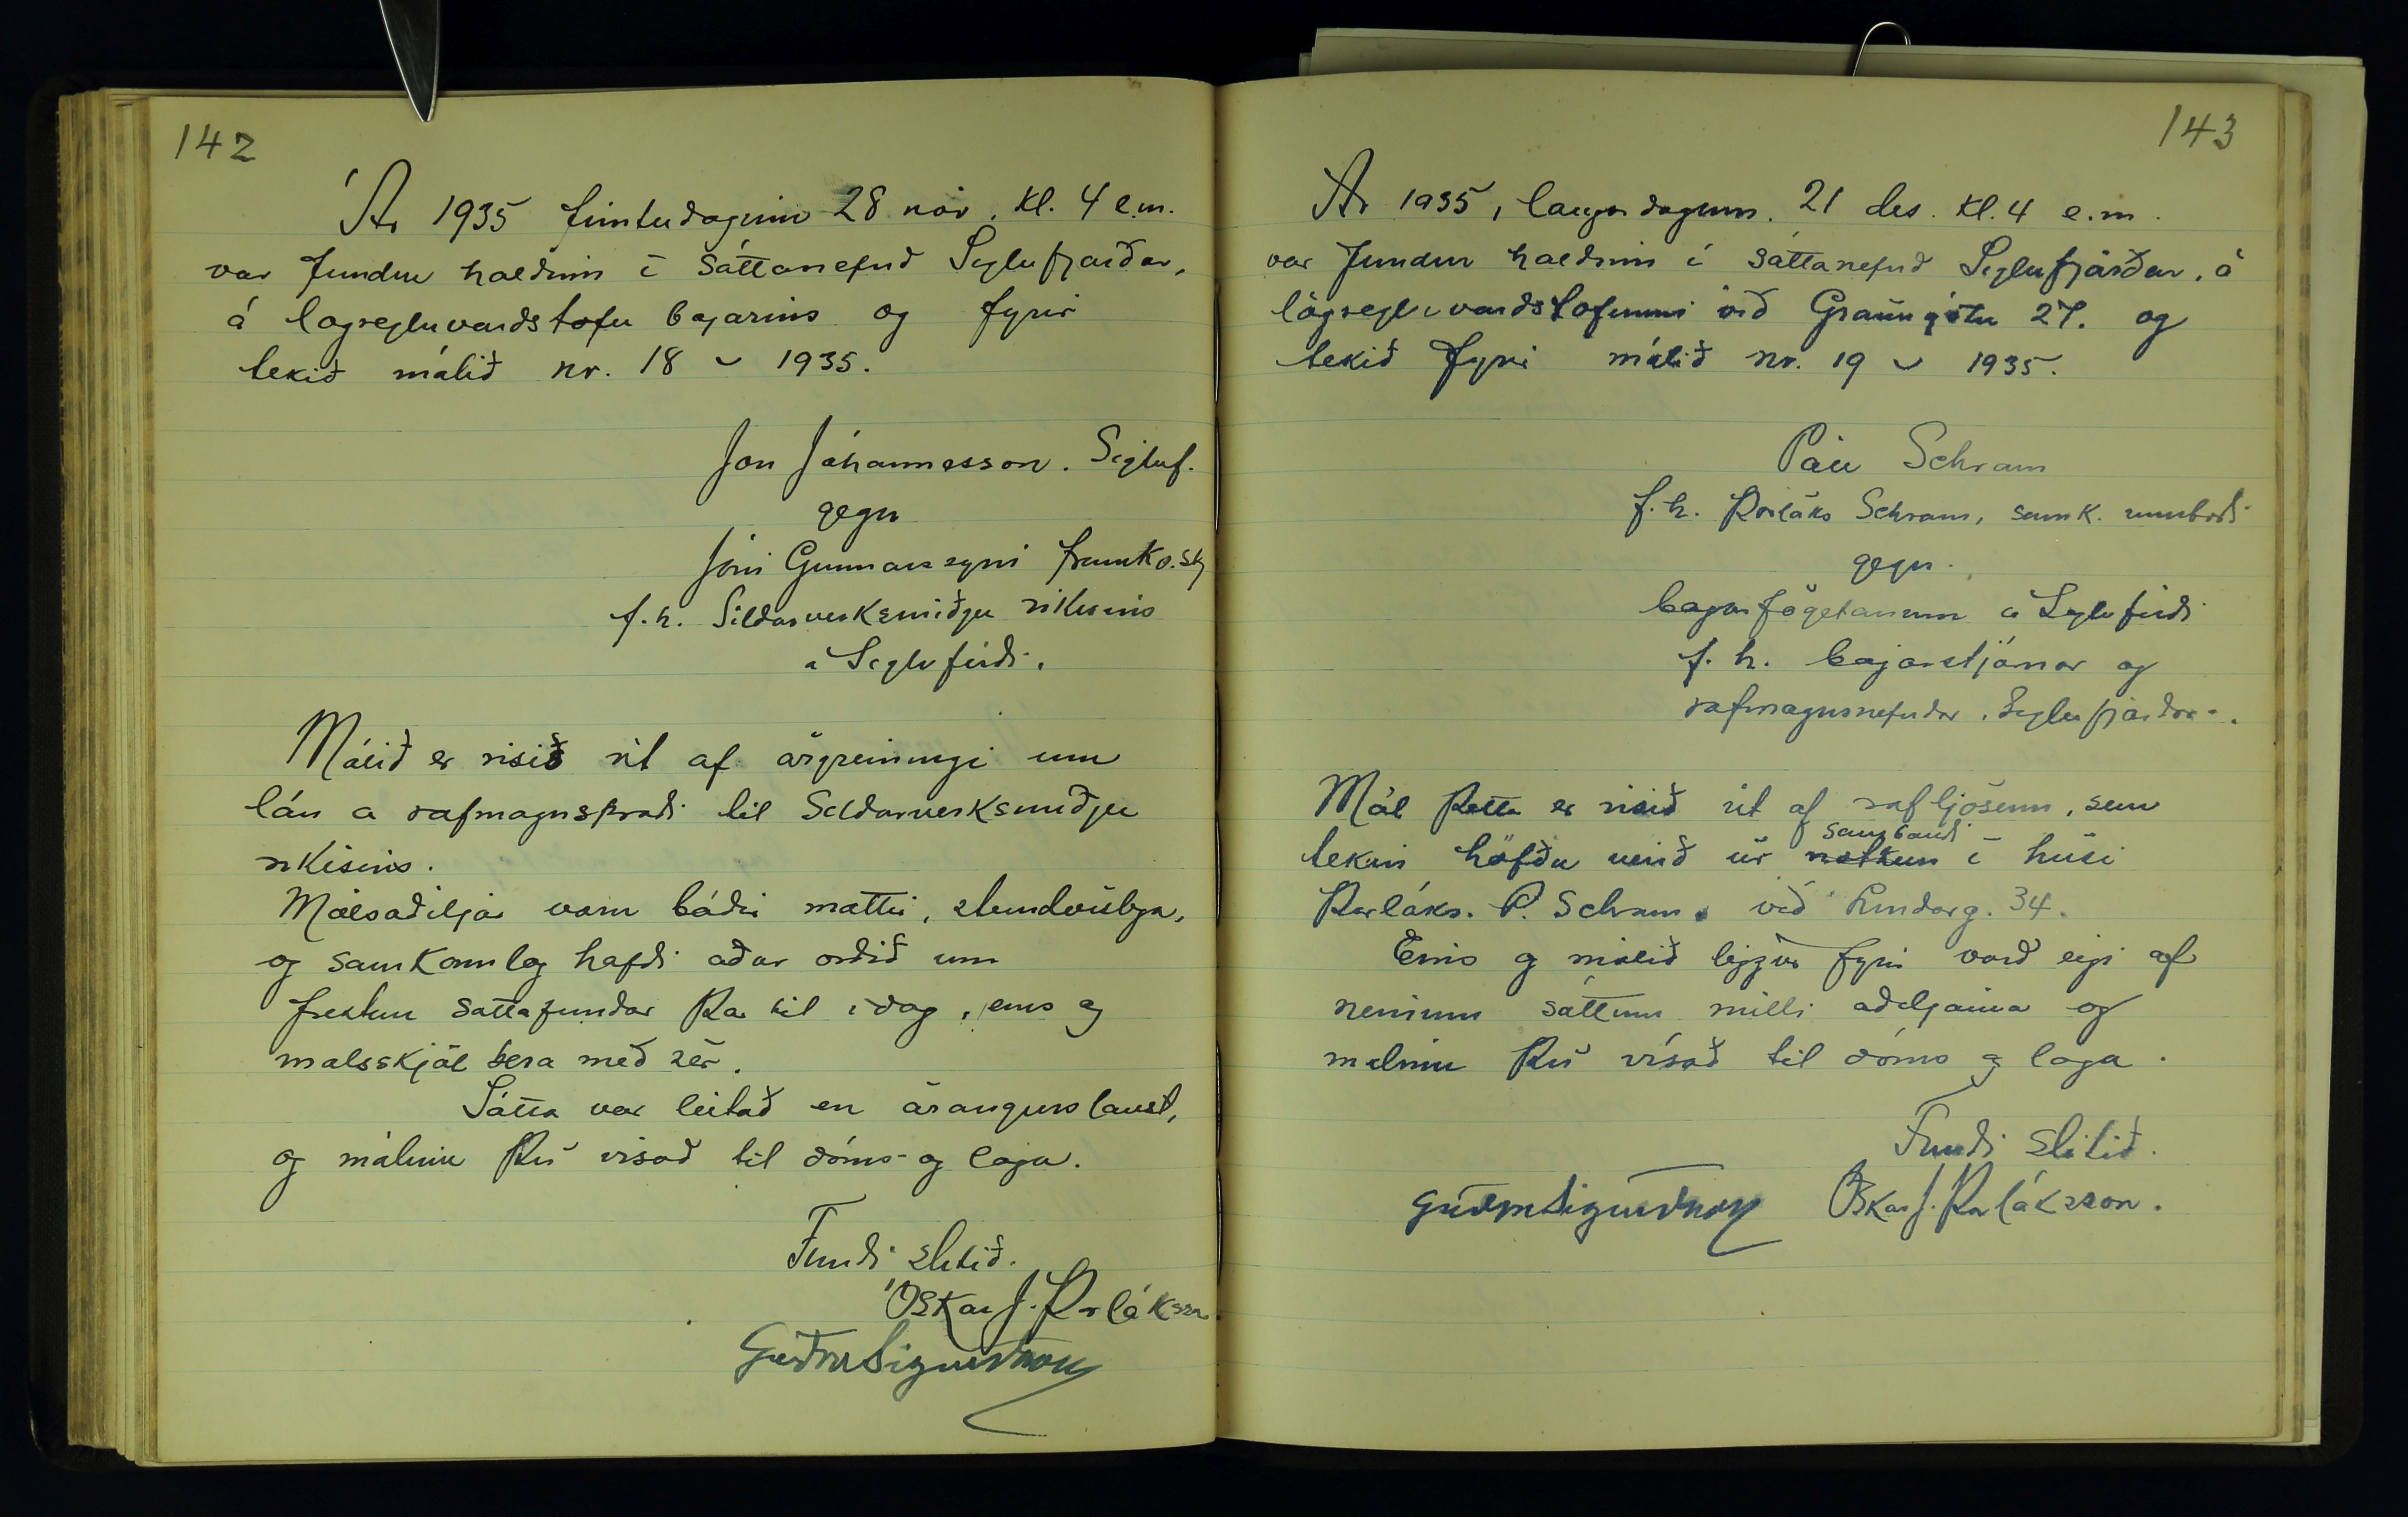 142
Ár 1935 fimtudaginn 28 nóv. kl. 4 e.m.
var fundur haldinn í Sáttanefnd Siglufjarðar,
á lögregluvarðstofu bæjarins og fyrir
tekið málið nr. 18 ~ 1935.
Jón Jóhannesson. Sigluf.
gegn
Jóni Gunnarssyni framkv.stj
f.h. Síldarverksmiðju ríkisins
á Siglufirði.
Málið er risið út af ágreiningi um
lán á rafmagnsþræði til Síldarverksmiðju
ríkisins.
Málsaðiljar voru báðir mættir, stundvíslega,
og samkomulag hafði áður orðið um
frestun sáttafundar þar til í dag, eins og
málsskjöl bera með sér.
Sátta var leitað en árangurslaust,
og málinu því vísað til dóms- og laga.
Fundi slitið.
Óskar J. Þorláksson
Guðm Sigurðsson
143
Ár 1935, laugardaginn. 21 des. kl. 4 e.m.
var fundur haldinn í sáttanefnd Siglufjarðar, á
lögregluvarðstofunni við Gránugötu 27. og
tekið fyrir málið nr. 19 ~ 1935.
Páll Schram
f.h. Þorláks Schram, samk. umboði
gegn.
bæjarfógetanum á Siglufirði
f.h. bæjarstjórnar og
rafmagnsnefndar. Siglufjarðar.
Mál þetta er risið út af rafljósum, sem
sambandi
tekin höfðu verið úr notkun í húsi
Þorláks. P. Schram. við Lindarg. 34.
Eins og málið liggur fyrir varð eigi af
neinum sáttum milli aðiljanna og
málinu því vísað til dóms og laga.
Fundi slitið.
Guðm Sigurðsson Óskar J. Þorláksson.